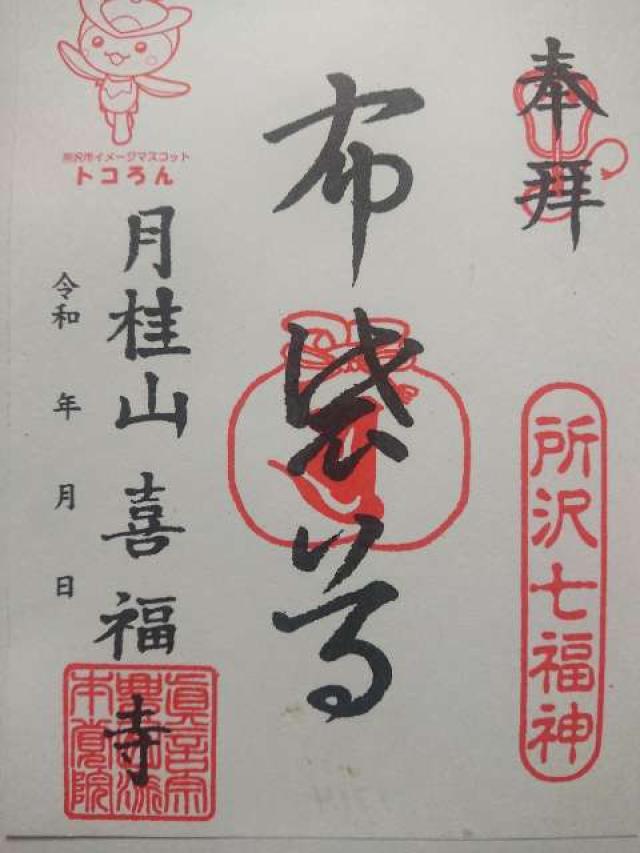 奉拝
所沢七福神
布袋尊
所沢市イメージマスコット
トコろん
月桂山喜福寺
令和 年 月 日
本覚院